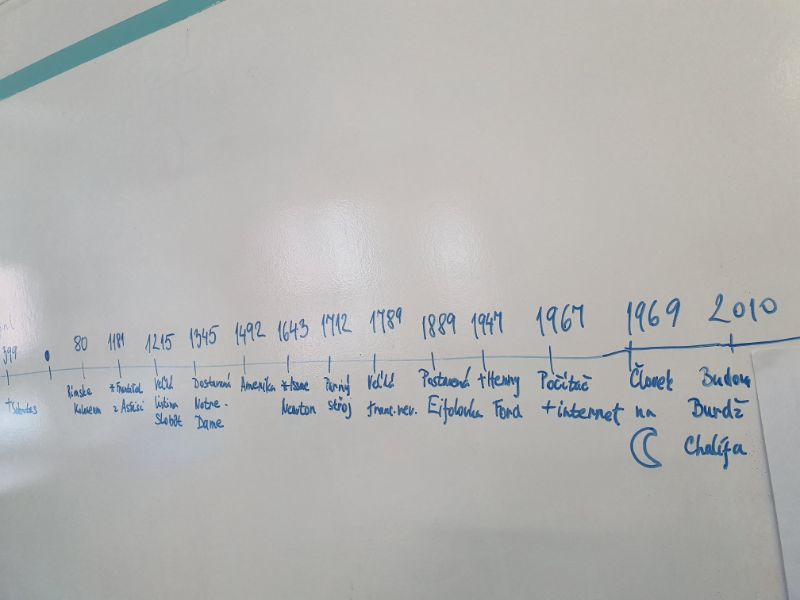 399
0
80
1181
1215
1345
1492
1643
1712
1789
1889
1947
1967
1969
2010
Rímske
Koloseum
* František
z Assisi
Veľká
listina
slobôd
Dostavaná
Notre-
Dame
Amerika
* Isaac
Newton
Parný
stroj
Veľká
franc. rev.
Postavená
Eifelovka
+ Henry
Ford
Počítač
+ internet
Človek
na
Budova
Burdž
Chalífa